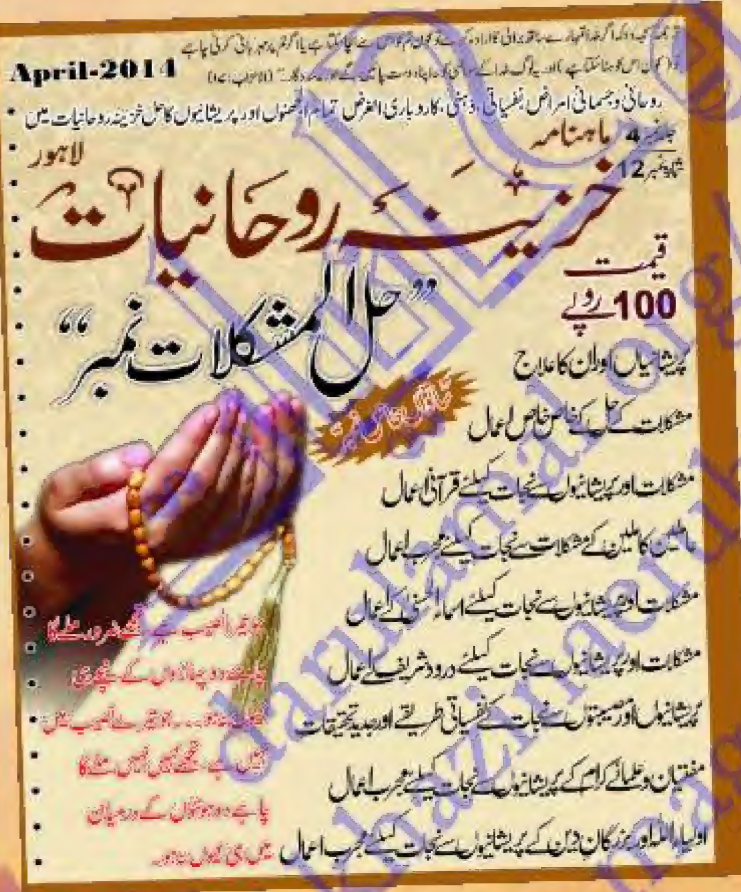 April-2014
روحانی وجسمانی امراض نفسیاتی، ذہنی، کاروباری الغرض تمام الجھنوں اور پریشانیوں کا حل خزینہ روحانیات میں
جلد نمبر 4 ماہنامہ لاہور
شمارہ نمبر 12
خزینہ روحانیات
قیمت
100 روپے
"حل المشکلات نمبر"
پریشانیاں اور ان کا علاج
مشکلات کے حل کے خاص خاص اعمال
مشکلات اور پریشانیوں سے نجات کیلئے قرآنی اعمال
عاملین کاملین کے مشکلات سے نجات کیلئے مجرب اعمال
مشکلات اور پریشانیوں سے نجات کیلئے اسماء الحسنیٰ کے اعمال
مشکلات اور پریشانیوں سے نجات کیلئے درود شریف کے اعمال
پریشانیوں اور مصیبتوں سے نجات کے نفسیاتی طریقے اور جدید تحقیقات
مفتیان و علمائے کرام کے پریشانیوں سے نجات کیلئے مجرب اعمال
اولیاء اللہ اور بزرگان دین کے پریشانیوں سے نجات کیلئے مجرب اعمال
جو تیرا نصیب ہے تجھے ضرور ملے گا
چاہے دو پہاڑوں کے نیچے ہی
کیوں نہ ہو۔۔۔ جو تیرے نصیب میں
نہیں ہے تجھے کہیں نہیں ملے گا
چاہے دو ہونٹوں کے درمیان
میں ہی کیوں نہ ہو۔